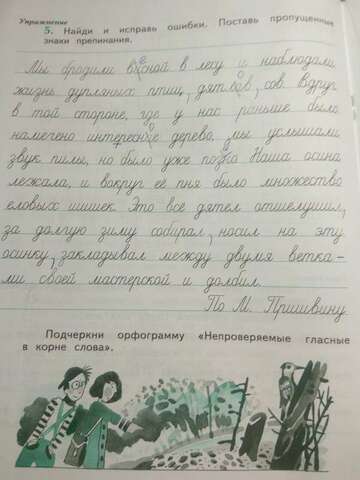 Упражнение
5. Найди и исправь ошибки. Поставь пропущенные
знаки препинания.
Мы бродили весной в лесу и наблюдали
жизнь дупляных птиц, дятлов, сов. Вдруг
в той стороне, где у нас раньше было
намечено интересное дерево, мы услышали
звук пилы, но было уже позко Наша осина
лежала, и вокруг её пня было множество
еловых шишек. Это всё дятел отшелушил,
за долгую зиму собирал, носил на эту
осинку, закладывал между двумя ветка-
ми своей мастерской и долбил.
По М. Пришвину
Подчеркни орфограмму «Непроверяемые гласные
в корне слова».